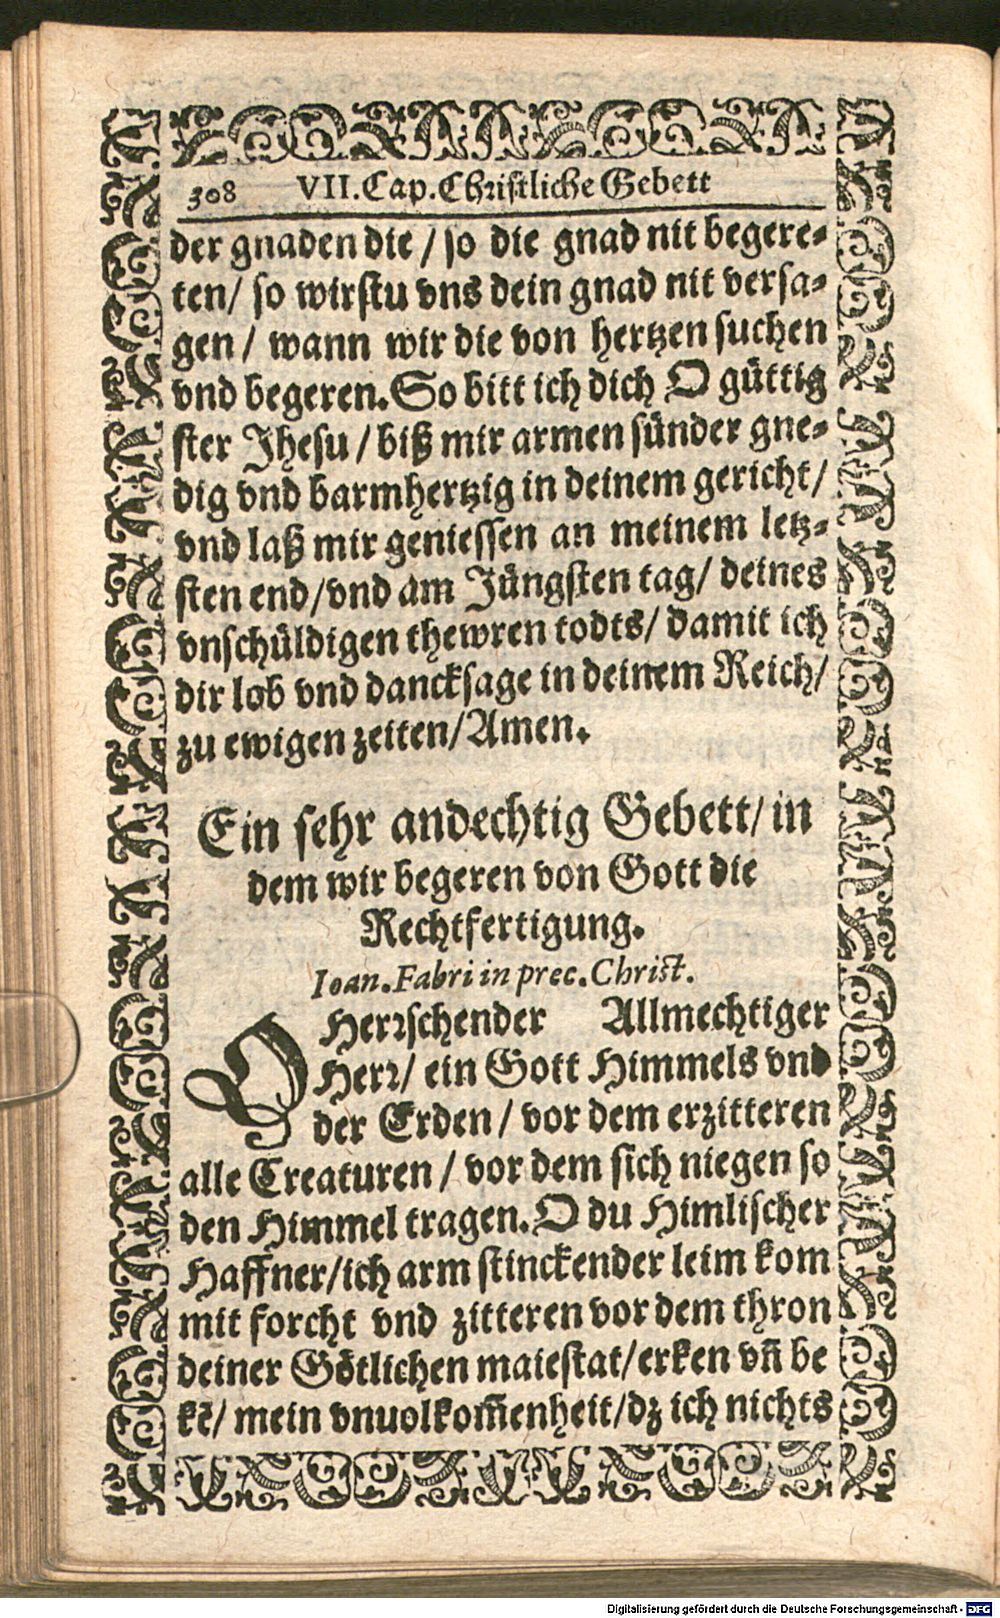 308 VII. Cap. Christliche Gebett
der gnaden die / so die gnad nit begere⸗
ten / so wirstu vns dein gnad nit versa⸗
gen / wann wir die von hertzen suchen
vnd begeren. So bitt ich dich O güttig
ster Jhesu / biß mir armen sünder gne⸗
dig vnd barmhertzig in deinem gericht /
vnd laß mir geniessen an meinem letz⸗
sten end / vnd am Jüngsten tag / deines
vnschüldigen thewren todts / damit ich
dir lob vnd dancksage in deinem Reich /
zu ewigen zeiten / Amen.
Ein sehr andechtig Gebett / in
dem wir begeren von Gott die
Rechtfertigung.
Ioan. Fabri in prec. Christ.
O Herrschender Allmechtiger
Herr / ein Gott Himmels vnd
der Erden / vor dem erzitteren
alle Creaturen / vor dem sich niegen so
den Himmel tragen. O du Himlischer
Haffner / ich arm stinckender leim kom
mit forcht vnd zitteren vor dem thron
deiner Götlichen maiestat / erken vñ be
kẽ / mein vnuolkom̃enheit / dz ich nichts
Digitalisierung gefördert durch die Deutsche Forschungsgemeinschaft - DFG